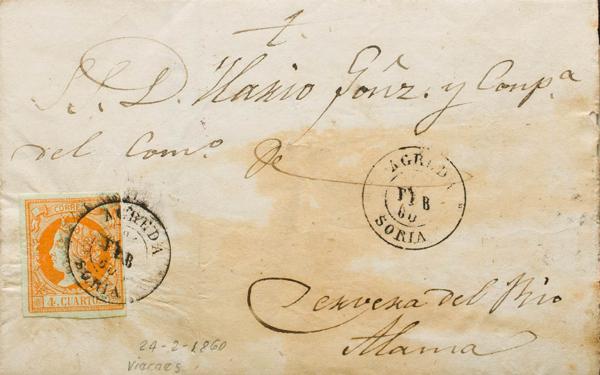 S. D. Ilario Gonz. y Compª
del Comº De
AGREDA
FEB
60
SORIA
CORREOS
AGREDA
FEB
60
SORIA
4 CUARTOS
Cervera del Rio
Alama
24-2-1860